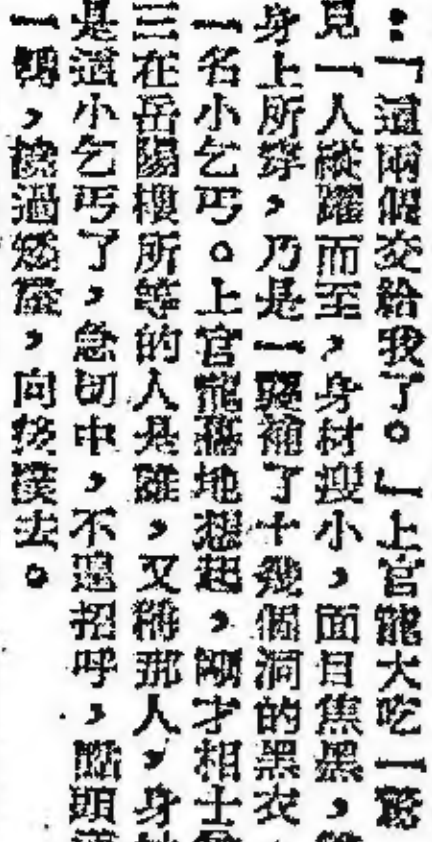 ：「這兩個交給我了。」上官龍大吃一驚
見一人縱躍而至，身材搜小，面目焦黑，
身上所穿，乃是一襲補了十幾個洞的黑衣，
一名小乞丐。上官龍驀地想起，剛才相士
三在岳陽樓所等的人是誰，又稱那人，身
是這小乞丐了，急切中，不遑招呼，點頭
一，繞過矮屋，向後撲去。